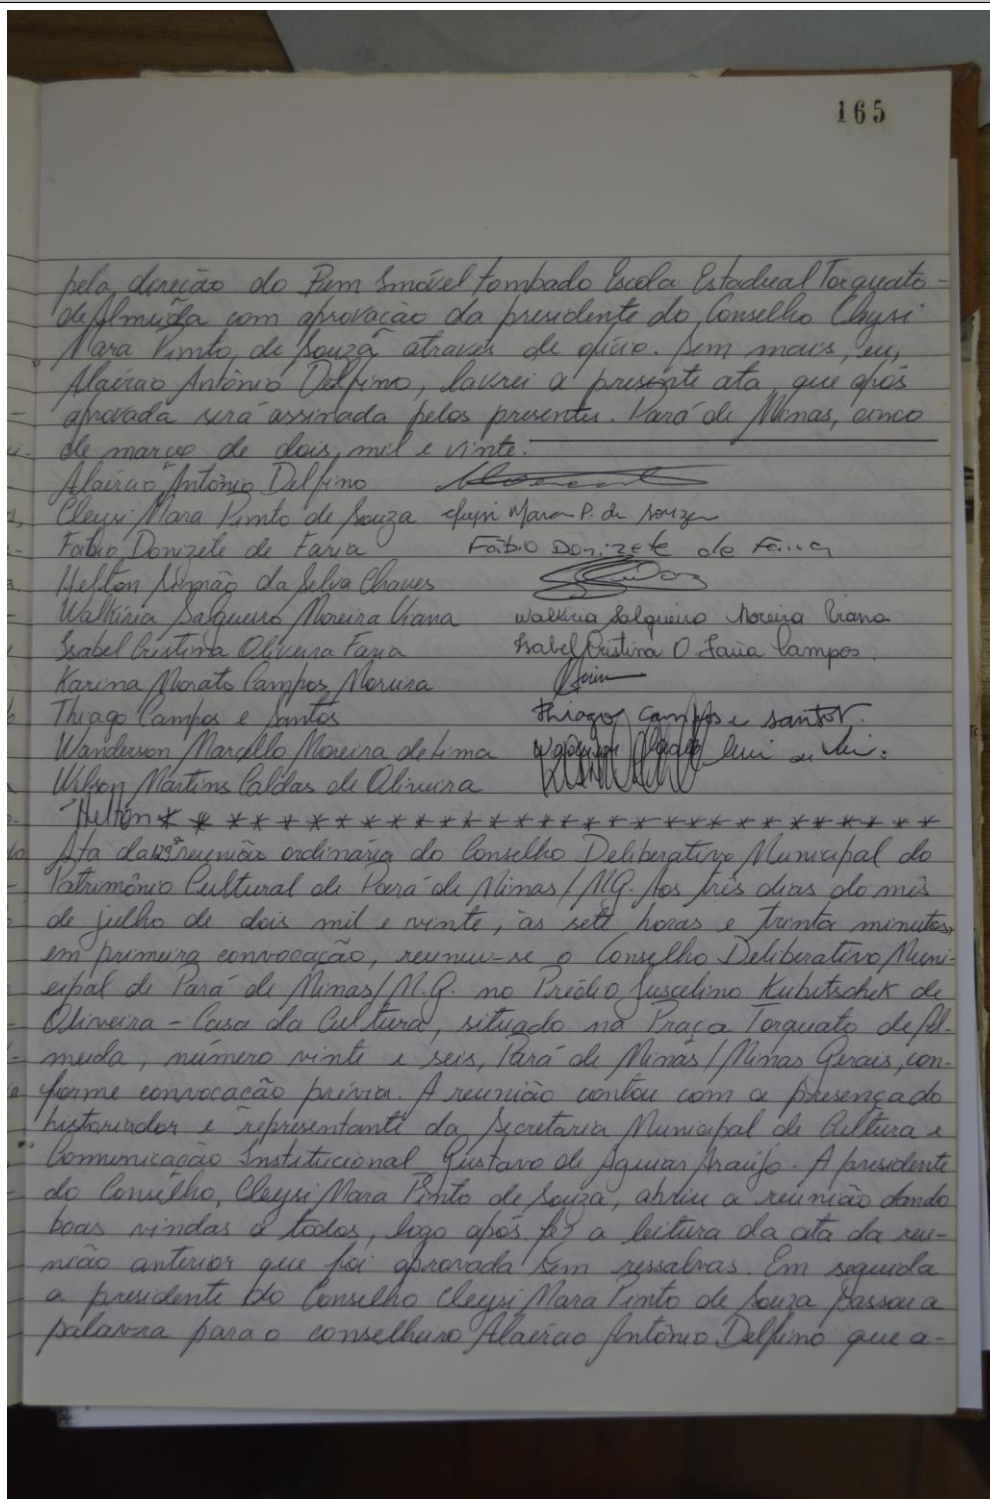 165
pela direção do Bem Imóvel tombado Escola Estadual Torquato
de Almeida com aprovação da presidente do Conselho Cleysi
Mara Pinto de Souza através de ofício. Sem mais, eu,
Alaércio Antônio Delfino, lavrei a presente ata, que após
aprovada será assinada pelos presentes. Pará de Minas, cinco
de março de dois mil e vinte.
Alaércio Antônio Delfino
Cleysi Mara Pinto de Souza Cleysi Mara P. de Souza
Fábio Donizete de Faria Fábio Donizete de Faria
Helton Simão da Silva Chaves
Walkíria Salgueiro Moreira Viana Walkíria Salgueiro Moreira Viana
Isabel Cristina Oliveira Faria Isabel Cristina O Faria Campos
Karina Morato Campos Moreira
Thiago Campos e Santos Thiago Campos e Santos
Wanderson Marcello Moreira de Lima
Wilson Martins Caldas de Oliveira
Helton * * * * * * * * * * * * * * * * * * * * * * * * * * * * * *
Ata da 129ª reunião ordinária do Conselho Deliberativo Municipal do
Patrimônio Cultural de Pará de Minas/MG. Aos três dias do mês
de julho de dois mil e vinte, às sete horas e trinta minutos,
em primeira convocação, reuniu-se o Conselho Deliberativo Muni-
cipal de Pará de Minas/M.G. no Prédio Juscelino Kubitschek de
Oliveira - Casa da Cultura, situado na Praça Torquato de Al-
meida, número vinte e seis, Pará de Minas/Minas Gerais, con-
forme convocação prévia. A reunião contou com a presença do
historiador e representante da Secretaria Municipal de Cultura e
Comunicação Institucional Gustavo de Aguiar Araújo. A presidente
do Conselho, Cleysi Mara Pinto de Souza, abriu a reunião dando
boas vindas a todos, logo após fez a leitura da ata da reu-
nião anterior que foi aprovada sem ressalvas. Em seguida
a presidente do Conselho Cleysi Mara Pinto de Souza passou a
palavra para o conselheiro Alaércio Antônio Delfino que a-